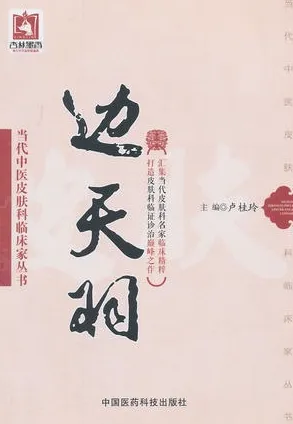 杏林墨香
当代中医皮肤科临床家丛书
边天羽
汇集当代皮肤科名家临床精粹
打造皮肤科临证诊治巅峰之作
主编 卢桂玲
当代中医皮肤科临床家丛书
中国医药科技出版社